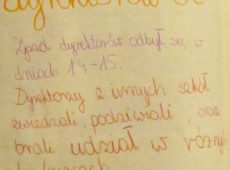 dyrektorów
Zjazd dyrektorów odbył się w
dniach 14-15.
Dyrektorzy z innych szkół
zwiedzali, podziwiali, oraz
brali udział w różnyc